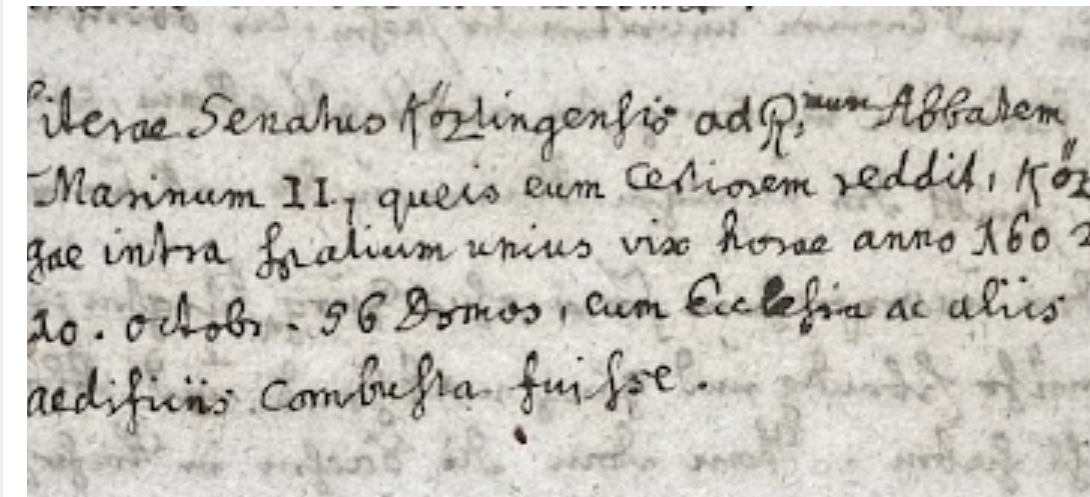 Literae Senatus Közlingensis ad R.mum Abbatem
Marinum II., queis eum certiorem reddit, Köz
gae intra spatium unius vix horae anno 160
20. octobr. 56 Domos, cum Ecclesia ac aliis
aedificiis combusta fuisse.